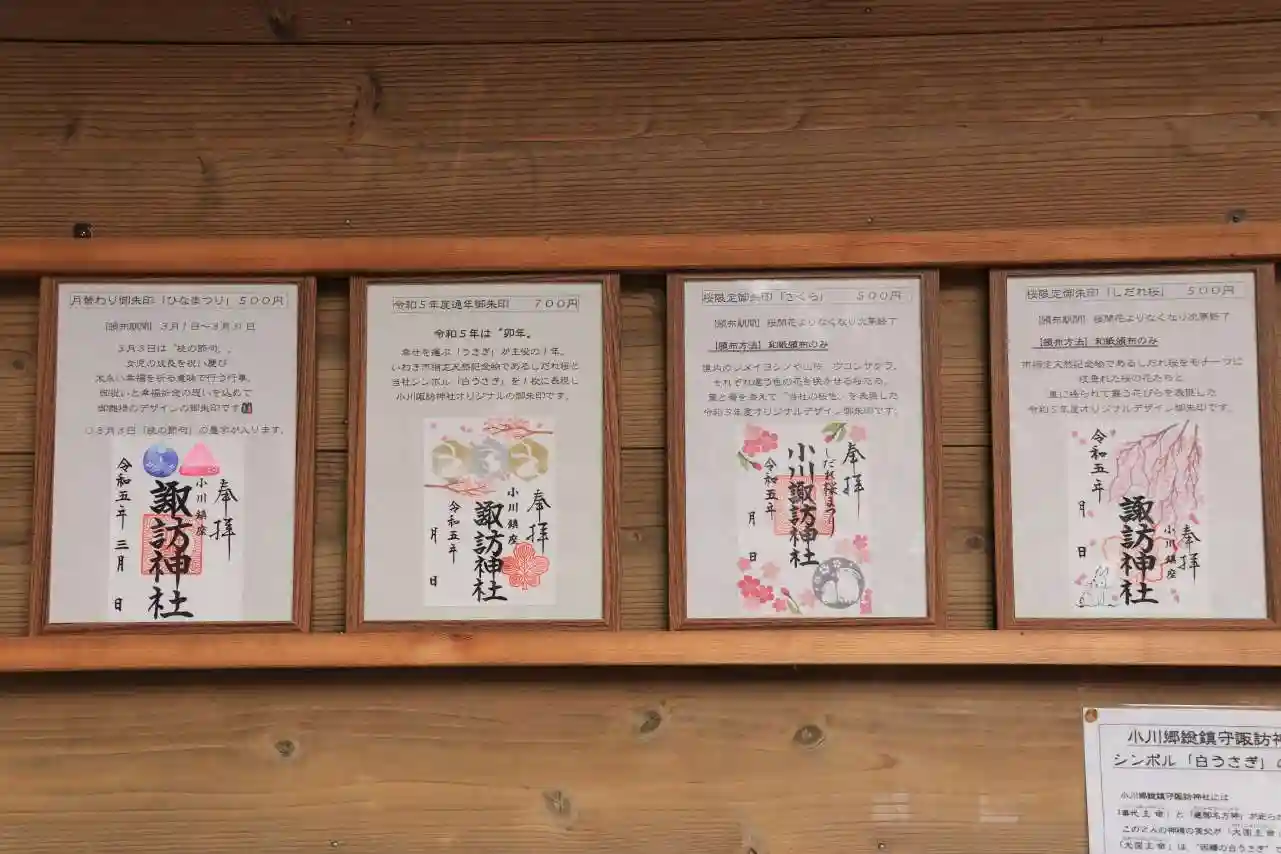 月替わり御朱印「ひなまつり」500円
【頒布期間】3月1日~3月31日
3月3日は"桃の節句"。
女児の成長を祝い慶び
末永い幸福を祈る意味で行う行事。
御祝いと幸福祈念の思いを込めて
御雛様のデザインの御朱印です
○3月3日「桃の節句」の墨字が入ります。
奉拝
小川鎮座
諏訪神社
令和五年 三月 日
令和5年度通年御朱印 700円
令和5年は"卯年。
幸せを運ぶ「うさぎ」が主役の1年。
いわき市指定天然記念物であるしだれ桜と
当社シンボル「白うさぎ」を1枚に表現し
小川諏訪神社オリジナルの御朱印です。
奉拝
小川鎮座
諏訪神社
令和五年 月 日
桜限定御朱印「さくら」 500円
【頒布期間】桜開花よりなくなり次第終了
【頒布方法】和紙頒布のみ
境内のソメイヨシノや山桜、ウコンザクラ。
それぞれ違う色の花を咲かせる桜たち。
葉と
令和5年度オリジナルデザイン御朱印です。
奉拝
しだれ桜まつり
小川諏訪神社
令和五年 月 日
桜限定御朱印「しだれ桜」 500円
【頒布期間】桜開花よりなくなり次第終了
【頒布方法】和紙頒布のみ
市指定天然記念物であるしだれ桜をモチーフに
枝垂れた桜の花たちと
風に揺られて舞う花びらを表現した
令和5年度オリジナルデザイン御朱印です。
奉拝
小川鎮座
諏訪神社
令和五年 月 日
小川郷総鎮守諏訪神
シンボル「白うさぎ」の
小川郷総鎮守諏訪神社には
「事代主命」と「建御名方神」が
この二人の神様の実父が「大国主命
「大国主命」は"因幡の白うさぎ"